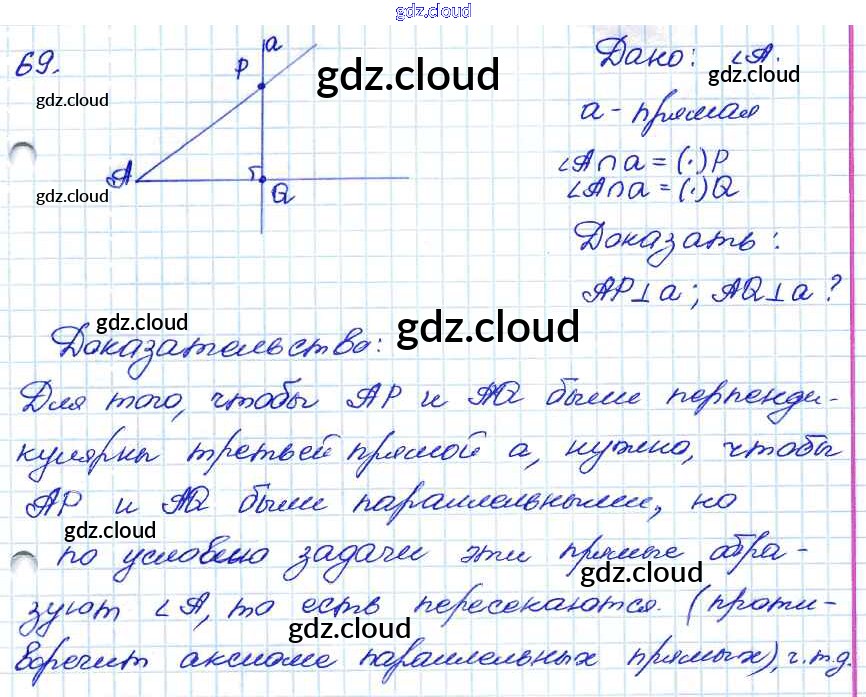 gdz.cloud
69.
a
P
gdz.cloud
Дано: ∠A.
gdz.cloud
gdz.cloud
a - прямая
A
Q
∠A∩a = (·)P
∠A∩a = (·)Q
gdz.cloud
Доказать:
AP⊥a; AQ⊥a?
gdz.cloud
gdz.cloud
Доказательство:
Для того, чтобы AP и AQ были перпенди-
кулярны третьей прямой a, нужно, чтобы
AP и AQ были параллельными, но
gdz.cloud
по условию задачи эти прямые обра-
gdz.cloud
зуют ∠A, то есть пересекаются. (проти-
gdz.cloud
воречит аксиоме параллельных прямых), ч.т.д.